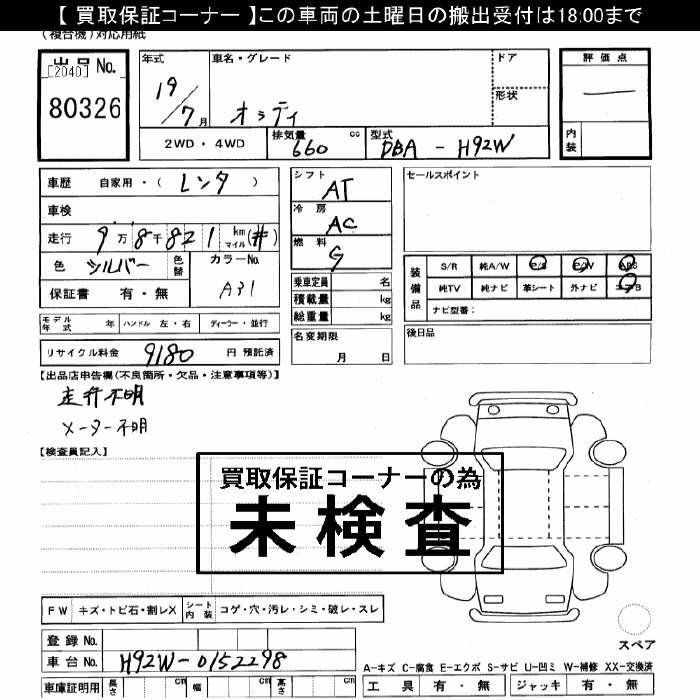 【 買取保証コーナー 】この車両の土曜日の搬出受付は18:00まで
(複合機)対応用紙
出品No.
[2040]
80326
年式
19/7月
車名・グレード
オッティ
ドア
形状
評価点
―
内装
2WD・4WD
排気量 660 cc
型式 DBA - H92W
車歴 自家用・(レンタ)
車検
走行 9万8千821 km マイル (#)
色 シルバー 色替
カラーNo. A31
保証書 有・無
シフト AT
冷房 AC
燃料 G
乗車定員 名
積載量 kg
総重量 kg
セールスポイント
装備品
S/R 純A/W P/S P/W ABS
純TV 純ナビ 革シート 外ナビ エアB
ナビ型番:
モデル年式 年 ハンドル 左・右 ディーラー・並行
名変期限
月 日
後日品
リサイクル料金 9180 円 預託済
【出品店申告欄(不良箇所・欠品・注意事項等)】
走行不明
メーター不明
【検査員記入】
買取保証コーナーの為
未検査
FW キズ・トビ石・割レX シート内装 コゲ・穴・汚レ・シミ・破レ・スレ
登録No.
車台No. H92W-0152298
車庫証明用 長さ cm 幅 cm 高さ cm
スペア
A-キズ C-腐食 E-エクボ S-サビ U-凹ミ W-補修 XX-交換済
工具 有・無 ジャッキ 有・無